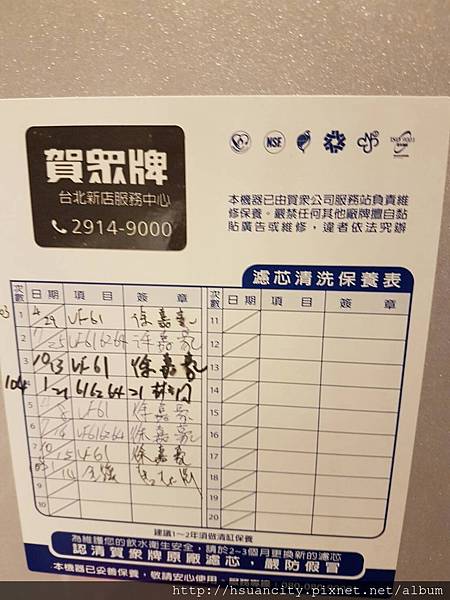 賀眾牌
台北新店服務中心
2914-9000
NSF
ISO 9001
本機器已由賀眾公司服務站負責維
修保養。嚴禁任何其他廠牌擅自黏
貼廣告或維修，違者依法究辦
濾芯清洗保養表
次數 日期 項目 簽章 次數
103 1 4/29 UF61 徐嘉 11
2 /25 UF616264 12
3 10/13 UF61 徐嘉 13
104 4 1/21 616264 14
5 UF61 徐嘉 15
6 UF616264 徐嘉 16
7 10/15 UF61 徐嘉 17
8 1/14 18
9 19
10 20
建議1~2年須做清缸保養
為維護您的飲水衛生安全，請於2~3個月更換新的濾芯
認清賀眾牌原廠濾芯，嚴防假冒
本機器已妥善保養，敬請安心使用。服務專線：080-080-
http://hsuancity.pixnet.net/album